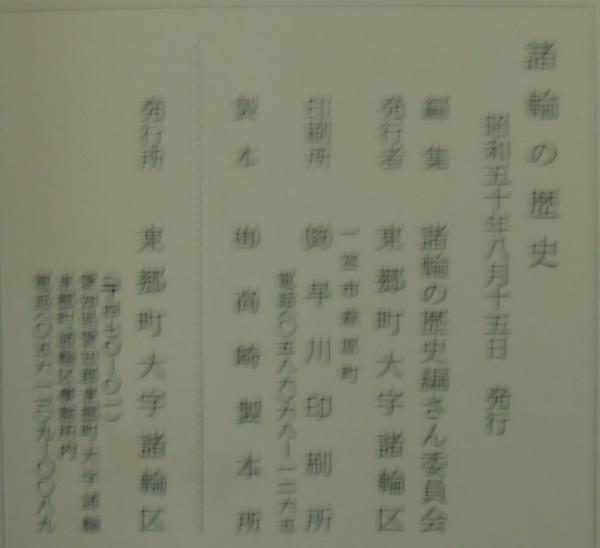 諸輪の歴史
昭和五十年八月十五日 発行
編集 諸輪の歴史編さん委員会
発行者 東郷町大字諸輪区
一宮市萩原町
印刷所 ㈾早川印刷所
電話(〇五八六)六八ー一三六五
製本 ㈲高崎製本所
発行所 東郷町大字諸輪区
愛知県愛知郡東郷町大字諸輪
東郷町諸輪区事務所内